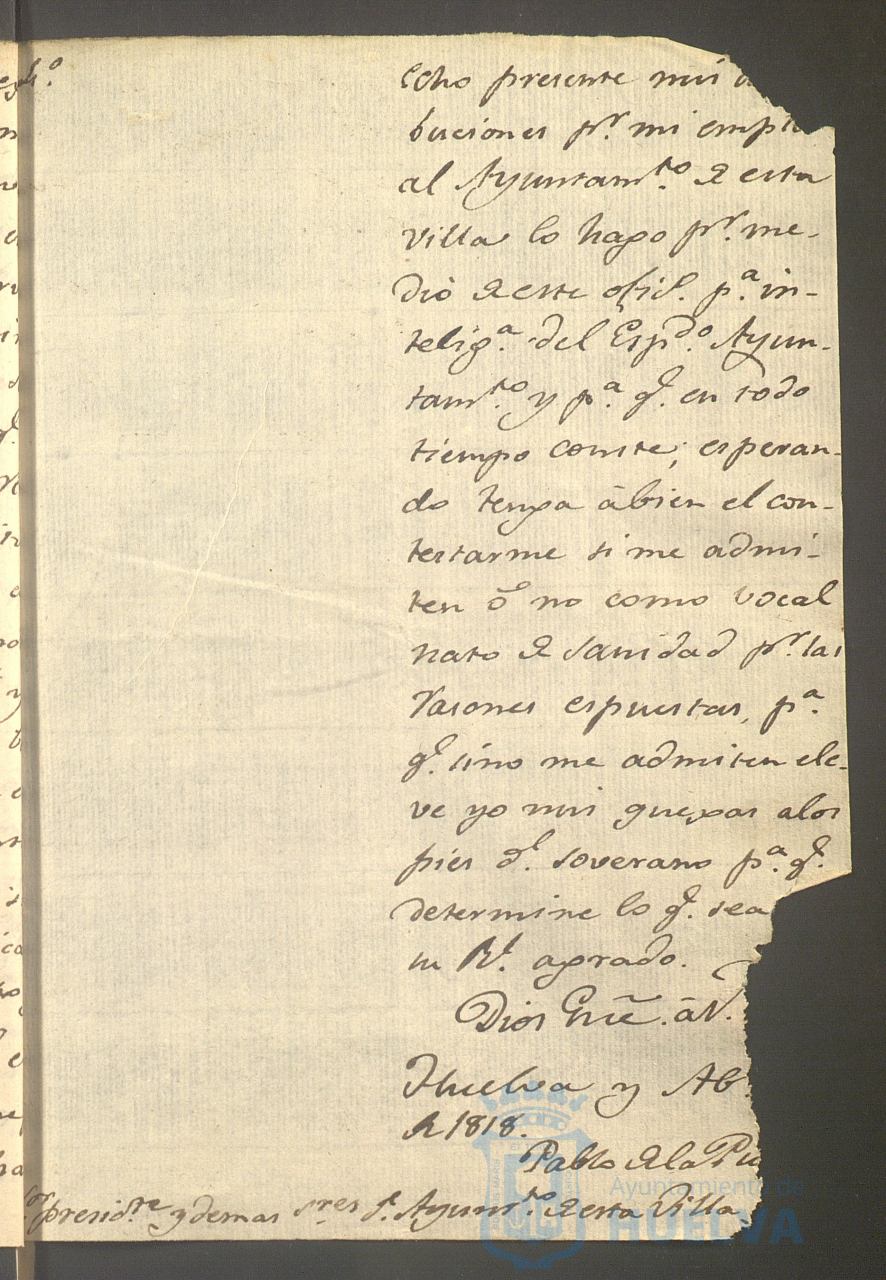 echo presente mis
buciones pr. mi emple
al Ayuntamto. de esta
villa lo hago pr. me-
dio de este ofic. pa. in-
telига. del Espdo. Ayun-
tamto. y pa. q. en todo
tiempo conste; esperan-
do tenga âbien el con-
testarme si me admi-
ten ô no como vocal
nato de sanidad pr. las
rasones espuestas, pa.
q. sino me admiten ele-
ve yo mis quexas alos
pies dl. soverano pa. q.
determine lo q. sea
su Rl. agrado.
Dios Gue. âV.
Huelva y Ab
de 1818.
Pablo dela Pu
presidte. y demas Sres. de Ayunto. de esta Villa
Ayuntamiento de
HUELVA